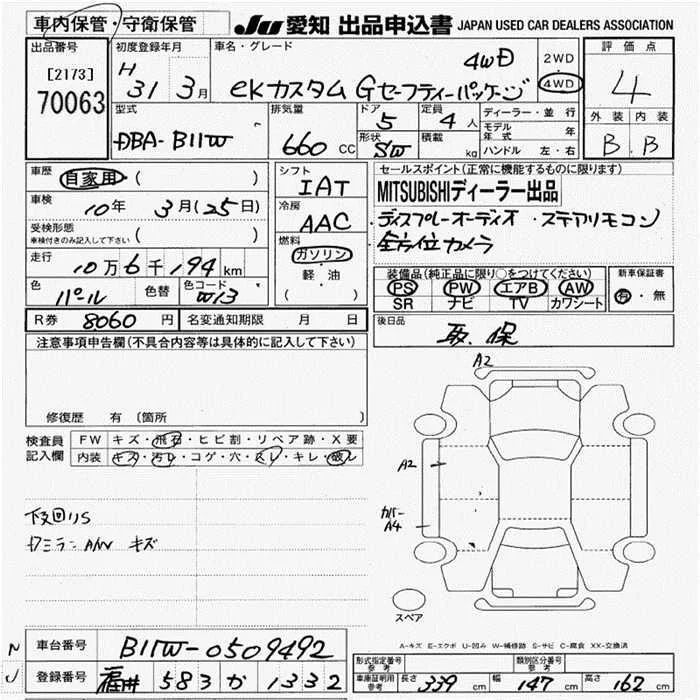 車内保管・守衛保管 JU 愛知 出品申込書 JAPAN USED CAR DEALERS ASSOCIATION
出品番号 [2173] 70063
初度登録年月 H 31 3月
車名・グレード 4WD
eKカスタム Gセーフティーパッケージ
2WD 4WD
評価点 4
外装 内装
B B
型式 DBA-B11W
排気量 660 CC
ドア 5 定員 4人
形状 SW 積載 kg
ディーラー・並行
モデル年式 年
ハンドル 左・右
車歴 自家用 ( )
車検 10年 3月(25日)
受検形態 ( )
車検付きのみ記入して下さい
走行 10万6千194km
色 パール 色替 色コード W13
シフト IAT
冷房 AAC
燃料 ガソリン
軽・油
( )
セールスポイント(正常に機能するものに限ります)
MITSUBISHIディーラー出品
・ディスプレーオーディオ ・ステアリモコン
・全方位カメラ
装備品(純正品に限り〇をつけてください)
PS PW エアB AW
SR ナビ TV カワシート
新車保証書
有・無
R券 8060 円 名変通知期限 月 日
後日品
取.保
注意事項申告欄(不具合内容等は具体的に記入して下さい)
修復歴 有 〔箇所
検査員記入欄
FW キズ・飛石・ヒビ割・リペア跡・X要
内装 キズ・汚レ・コゲ・穴・スレ・キレ・破レ
下回りS
Dミラー AW キズ
A2
A2
カバー A4
スペア
A-キズ E-エクボ U-凹み W-補修跡 S-サビ C-腐食 XX-交換済
N
J
車台番号 B11W-0509492
登録番号 福井 583 か 1332
形式指定番号 参考
類別区分番号 参考
車庫証明用 参考 長さ 339 cm 幅 147 cm 高さ 162 cm